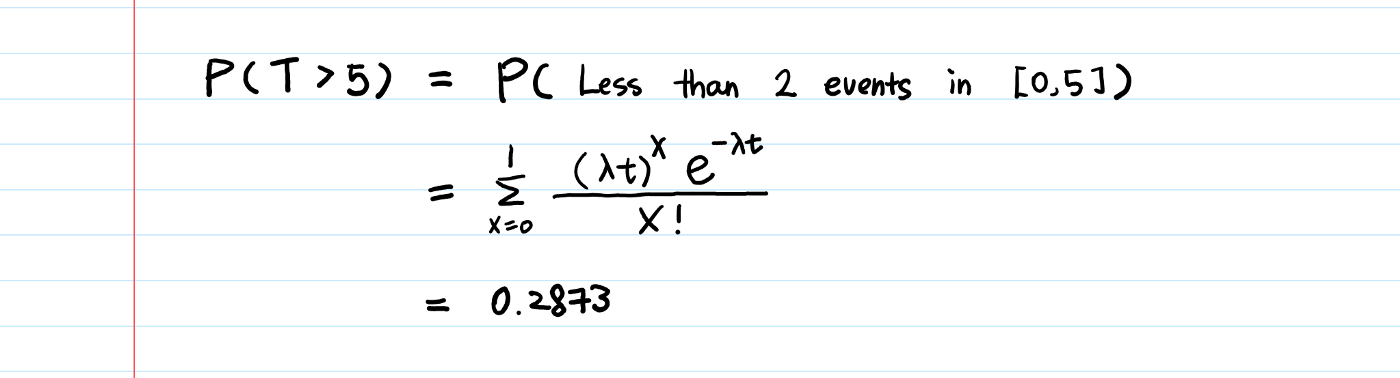 P(T > 5) = P( Less than 2 events in [0,5])
= \sum_{x=0}^{1} \frac{(λt)^x e^{-λt}}{x!}
= 0.2873